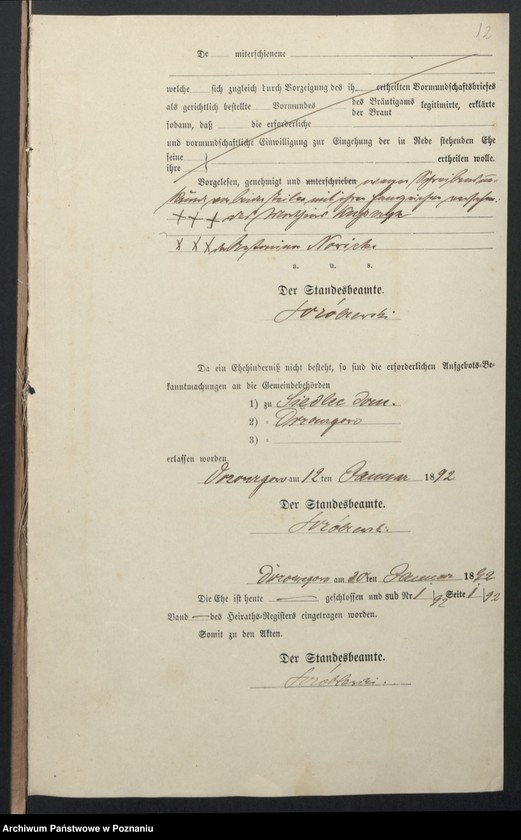 12
De miterschienene
welche sich zugleich durch Vorzeigung des ih ertheilten Vormundschaftsbriefes
als gerichtlich bestellte Vormundes des Bräutigams legitimirte, erklärte
der Braut
sodann, daß die erforderliche
und vormundschaftliche Einwilligung zur Eingehung der in Rede stehenden Ehe
seine
ihre } ertheilen wolle.
Vorgelesen, genehmigt und unterschrieben wegen Schreibensun-
kunde mit ihren Handzeichen versehen.
+++ des
XXX der Nowicka
u. u. s.
Der Standesbeamte.
Da ein Ehehinderniß nicht besteht, so sind die erforderlichen Aufgebots-Be-
kanntmachungen an die Gemeindebehörden
1) zu Siedlec dom.
2) "
3) "
erlassen worden.
am 12ten Januar 1892
Der Standesbeamte.
am 30ten Januar 1892
Die Ehe ist heute geschlossen und sub Nr. 1/92 Seite 1/92
Band des Heiraths-Registers eingetragen worden.
Somit zu den Akten.
Der Standesbeamte.
Archiwum Państwowe w Poznaniu